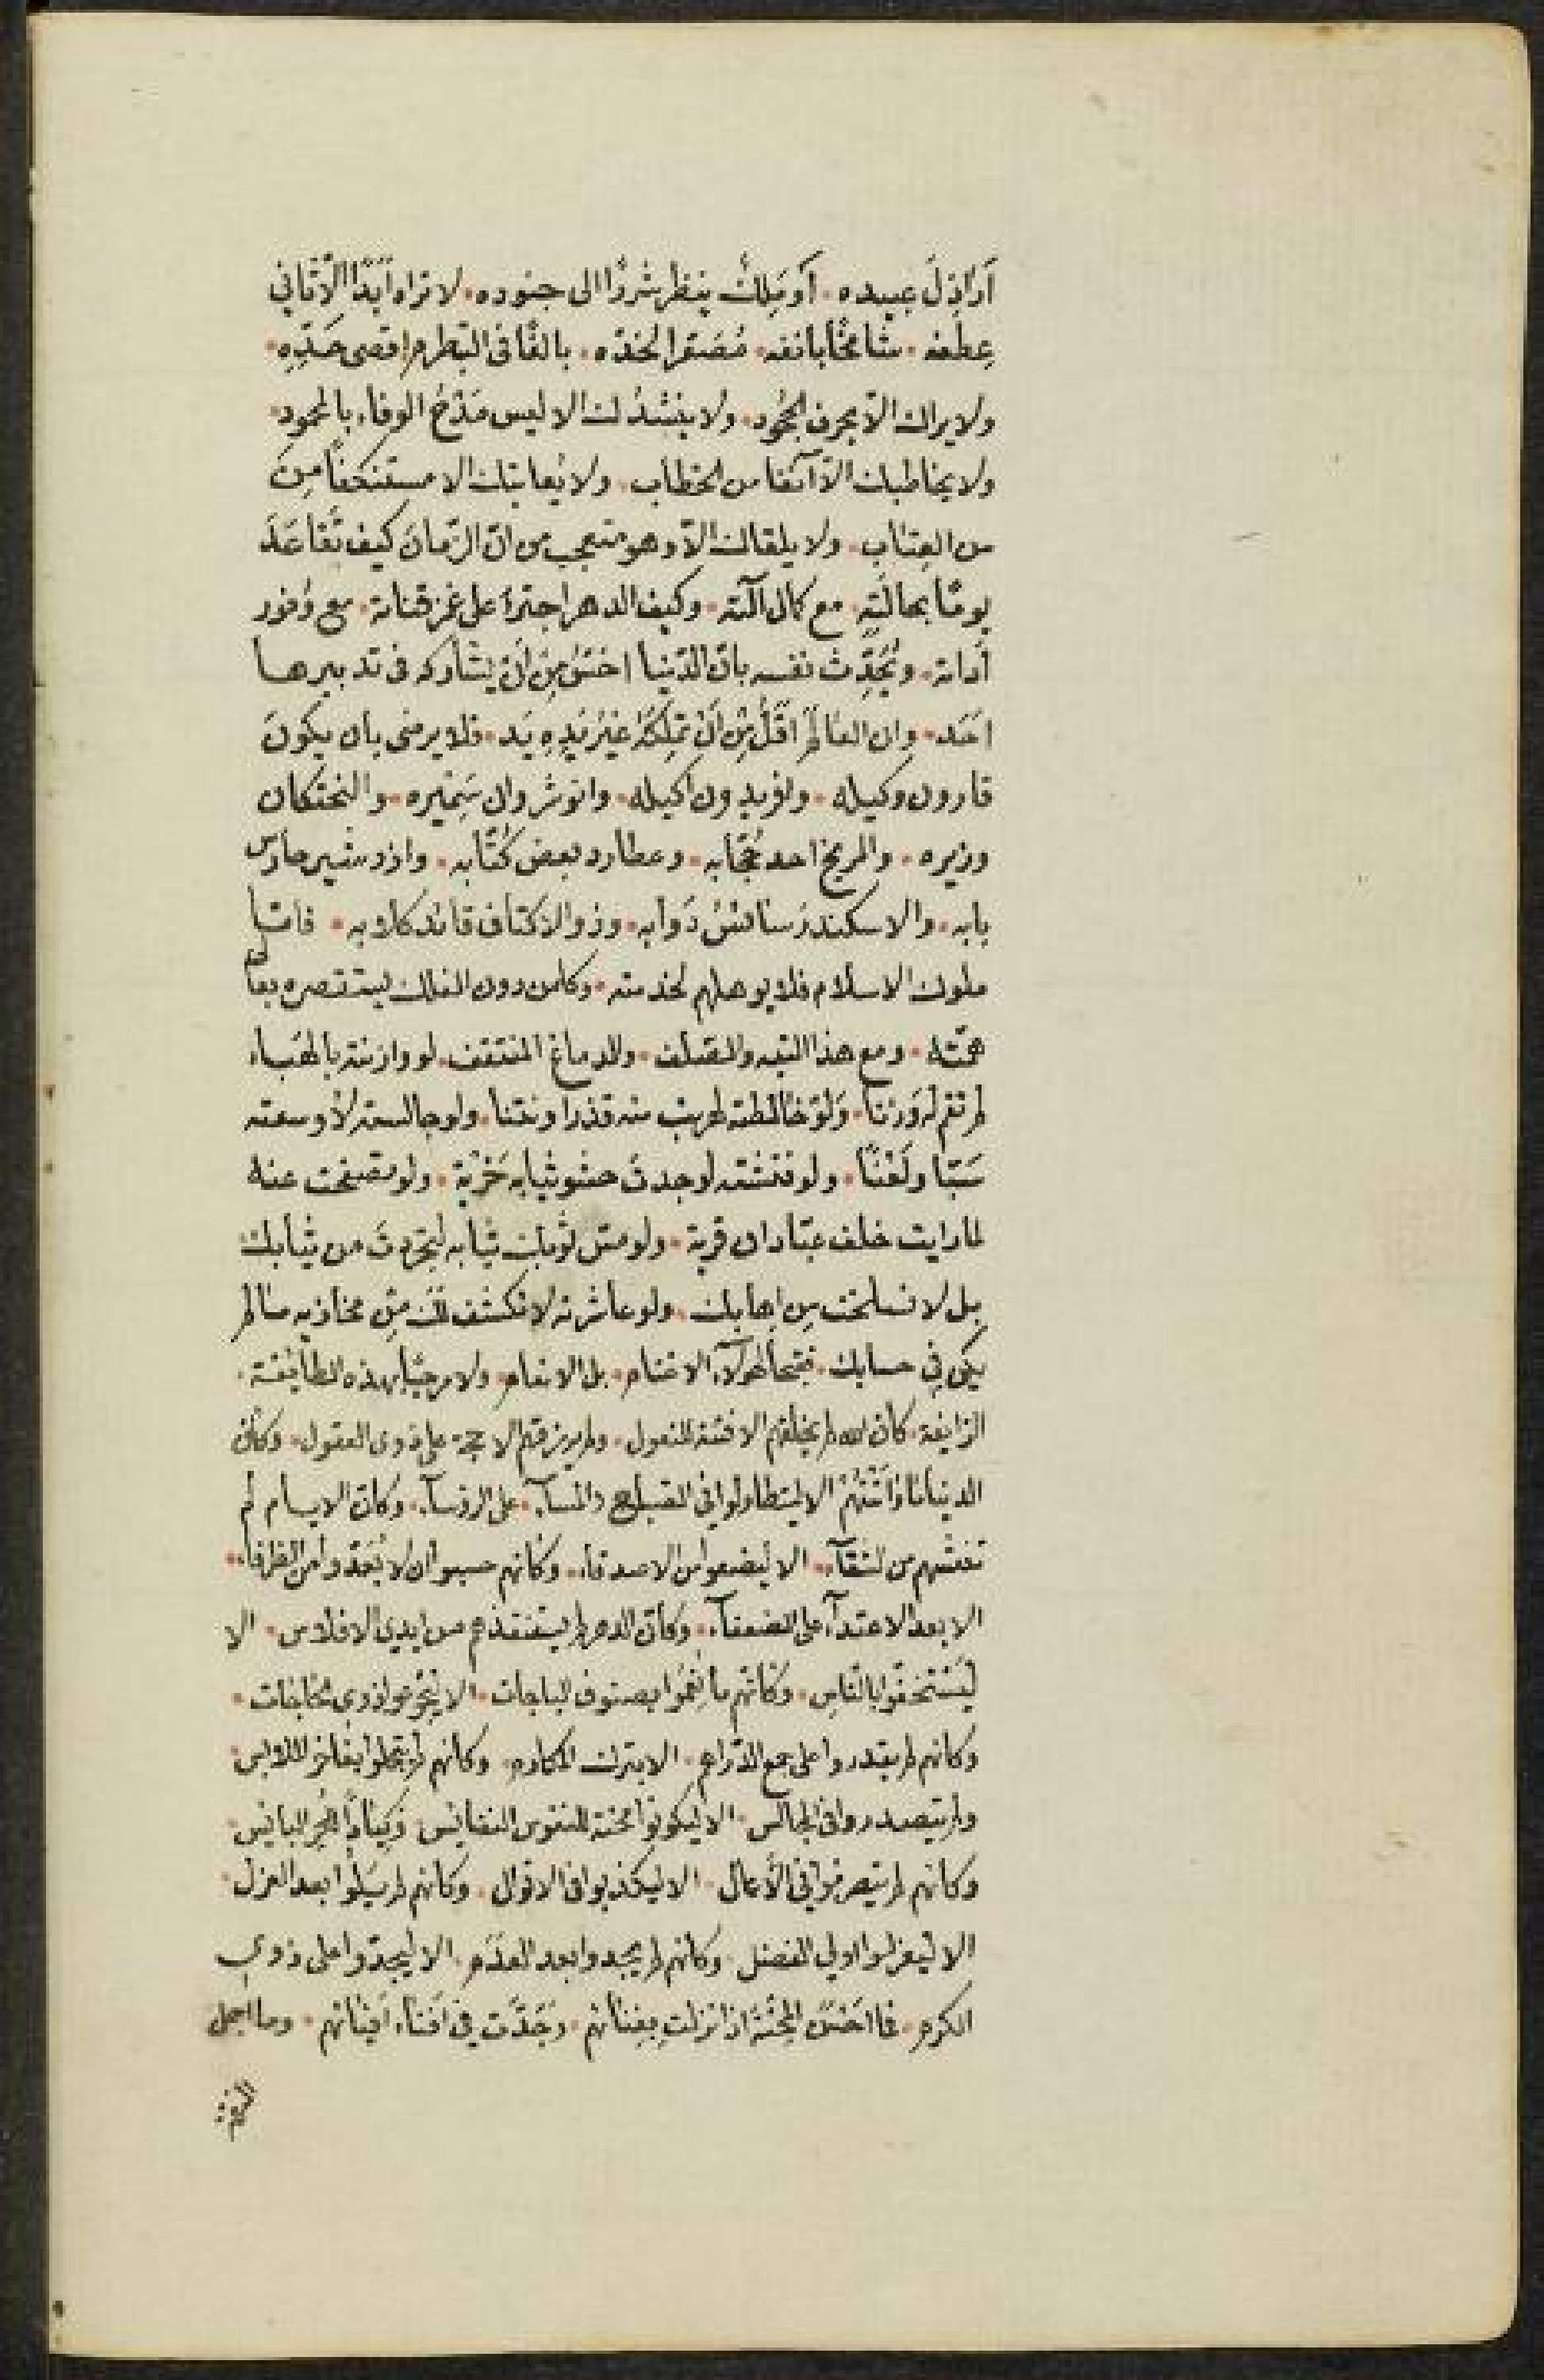 اَرَاذِلَ عبيده . اَو مَلِكٌ ينظر شررًا الى جنوده . لا تراه اَبَدًا الّا ثاني
عِطفه . شامخًا بانفه . مُصَعّرا لخدّه . بالغًا في التبظرم اقصى حَدِّهِ .
ولا يراك الّا بحرف الجحُود . ولا ينشدُ لك الا ليس مَدْحُ الوفاء بالمحمود .
ولا يخاطبك الّا آنفا من الخطاب . ولا يُعاتبك الا مستنكفًا مِنَ
من العِتاب . ولا يلقاك الّا وهو متعجب من انّ الزّمانَ كيف تَقاعَدَ
يومًا بحالَتِهِ مع كمال آلته . وكيف الدهر اجترأ على غمز قناته . مع وُفور
أداته . ويُحَدِّث نفسه بانّ الدّنيا اخسّ مِن اَنْ يشاركه في تدبيرها
اَحَد . وان العالَم اَقَلُّ مِن اَنْ تملِكَهُ غَيْرُ يَدِهِ يَد . فلا يرضى بان يكونَ
قارون وكيله . وافريدون اكيله . وانوشروان سَمِيره . والبختكان
وزيره . والمريخ احد حُجّابه . وعطارد بعض كُتّابه . واردشير حارس
بابه . والاسكندر سائسُ دَوابه . وذو الاكتاف قائد كلابه . فامّا
ملوك الاسلام فلا يوهلهم لخدمته . وكلمن دون الفلك ليستقصره بعالي
همّته . ومع هذا التيه والصلف . والدماغ المنتقف . لو وازنته بالهَباء
لم تقم له وَزنا . ولَوْ خالطته لهربت منه قذرا ونتنا . ولو جالسته لأوسعته
سَبّا ولَعْنًا . ولو فتشته لوجدتَ حشو ثيابه خَرْبَة . ولو تصفحت عنه
لما رايت خلف عبّادان قرية . ولو مسّ ثوبك ثيابه لتجرّدتَ من ثيابك
بل لانسلخت مِن اِهابك . ولو عاشرته لانكشف لك مِن مخازيه ما لم
يكن في حسابك . فقبحًا لهولاء الاغنام . بل الانعام . ولا مرحبًا بهذه الطائفة .
الزائغة . كأن الله لم يخلقهم الا فتنة للعقول . ولم يرزقهم الا حجة على ذوي العقول . وكأنّ
الدنيا ما زانتهُمْ الا ليتطاولوا في القبايح والمساء . على الرؤساء . وكأن الايام لم
تنعشهم من الشقاء . الا ليضعوا من الاصدقاء . وكأنهم حسبوا ان لا يُعَدّوا من الظرفاء .
الا بعد الاعتداء على الضعفاء . وكأنّ الدهر لم يستنقذهم من ايدي الافلاس . الا
لِيَستخفّوا بالنّاسِ . وكأنّهم ما نعموا بصنوف الباجات . الا ليُجوّعوا ذوي الحاجات .
وكأنهم لم يقدروا على جمع الدّراهم . الا بترك المكارم . وكأنهم لم يتجمّلوا بفاخر الملابس .
ولم يتصدروا في المجالس . الا ليكونوا محنة للنفوس النفايس .
وكأنهم لم يتصرفوا في الأعمال . الا ليكذبوا في الاقوال . وكأنهم لم يَلُوا بعد العزل .
الا ليعزلوا اولي الفضل . وكأنهم لم يجدوا بعد العَدَم . الا ليجدّوا على ذوي
الكرم . فما اَحْسَنَ المِحْنَةَ اذا نزلت بِفِنائهم . وجَدَّت في اِفناء اَفنائهم . وما اجمل
النقم